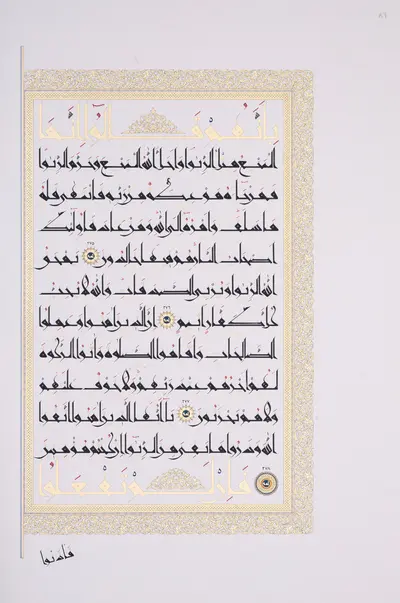 بأنهم قالوا إنما
البيع مثل الربوا وأحل الله البيع وحرم الربوا
فمن جاءه موعظة من ربه فانتهى فله
ما سلف وأمره إلى الله ومن عاد فأولئك
أصحاب النار هم فيها خالدون ٢٧٥ يمحق
الله الربوا ويربي الصدقات والله لا يحب
كل كفار أثيم ٢٧٦ إن الذين آمنوا وعملوا
الصالحات وأقاموا الصلوة وآتوا الزكوة
لهم أجرهم عند ربهم ولا خوف عليهم
ولا هم يحزنون ٢٧٧ يا أيها الذين آمنوا اتقوا
الله وذروا ما بقي من الربوا إن كنتم مؤمنين
٢٧٨ فإن لم تفعلوا
فأذنوا